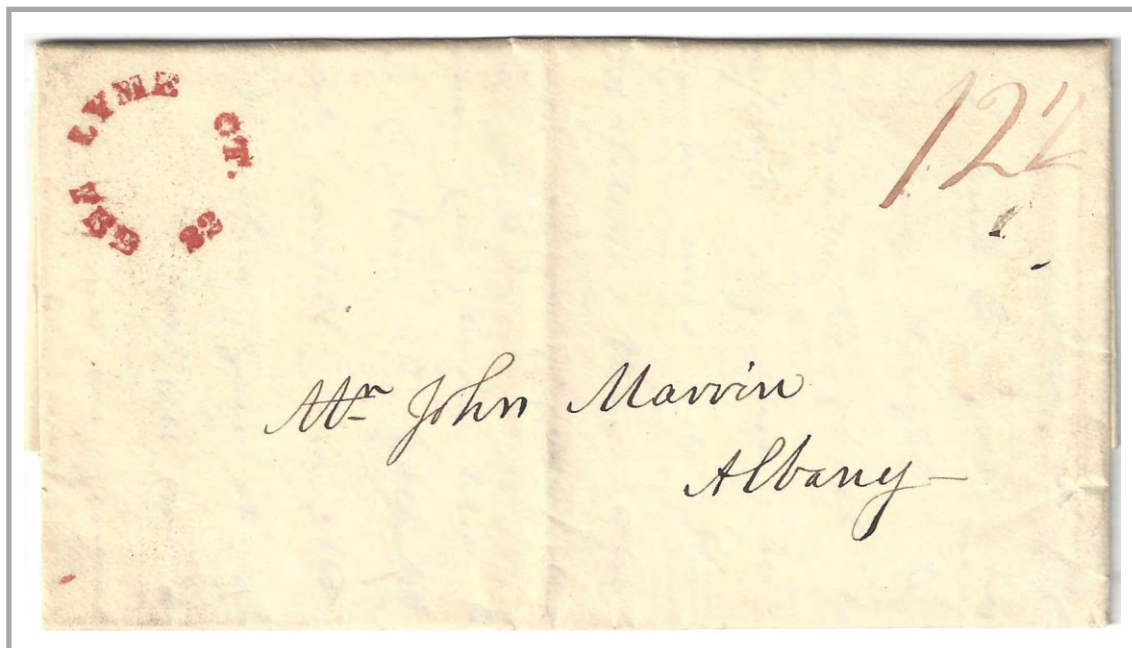 LYME CT.
FEB
12½
Mr John Marvin
Albany